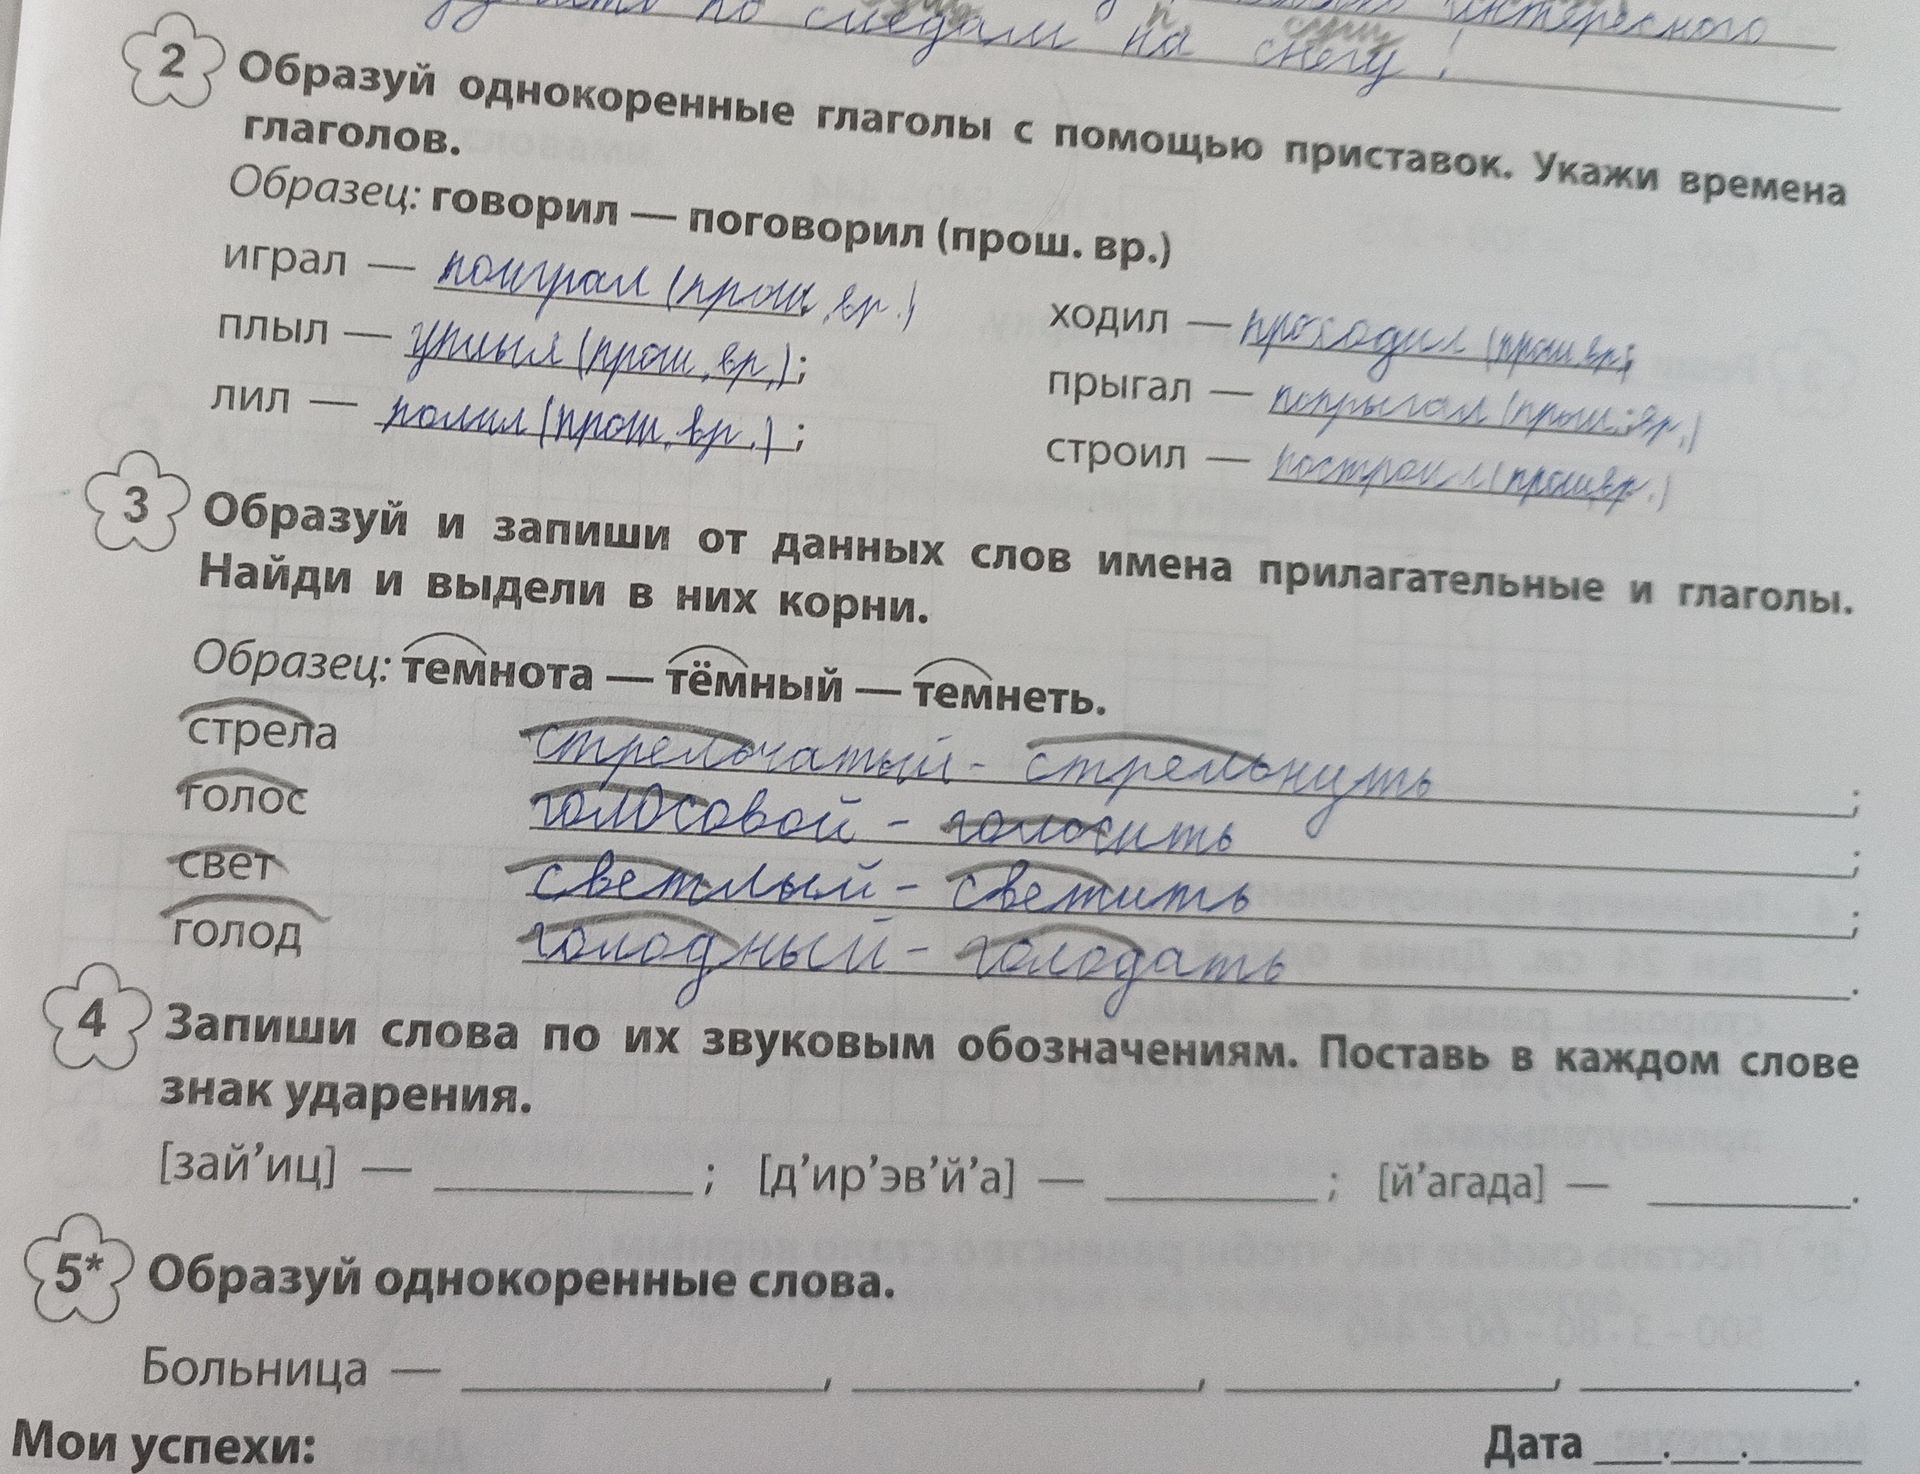 по следам на снегу!
интересного
2 Образуй однокоренные глаголы с помощью приставок. Укажи времена
глаголов.
Образец: говорил — поговорил (прош. вр.)
играл — поиграл (прош. вр.)
ходил — проходил (прош. вр.;
плыл — уплыл (прош. вр.);
прыгал — попрыгал (прош. вр.)
лил — полил (прош. вр.);
строил — построил (прош. вр.)
3 Образуй и запиши от данных слов имена прилагательные и глаголы.
Найди и выдели в них корни.
Образец: темнота — тёмный — темнеть.
стрела стрельчатый - стрельнуть ;
голос голосовой - голосить ;
свет светлый - светить ;
голод голодный - голодать .
4 Запиши слова по их звуковым обозначениям. Поставь в каждом слове
знак ударения.
[зай’иц] — ; [д’ир’эв’й’а] — ; [й’агада] — .
5* Образуй однокоренные слова.
Больница — , , , .
Мои успехи: Дата . .